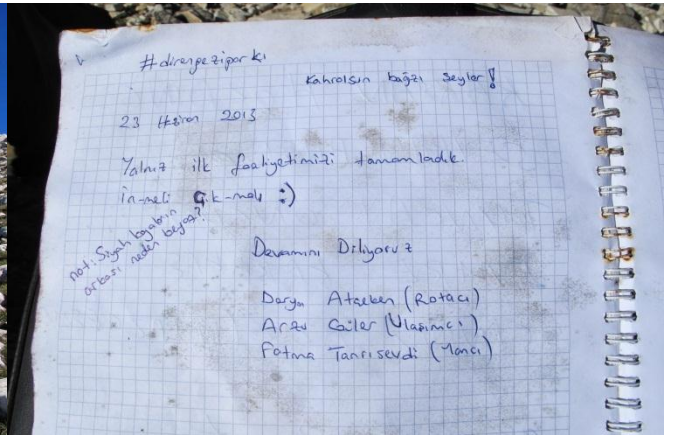 #direngeziparkı
Kahrolsun bağzı şeyler!
23 Haziran 2013
Yalnız ilk faaliyetimizi tamamladık.
İn-meli Çık-malı :)
not: Siyah
neden beyaz?
Devamını Diliyoruz
(Rotacı)
Arzu (Ulaşımcı)
Fatma Tanrısevdi (Yancı)